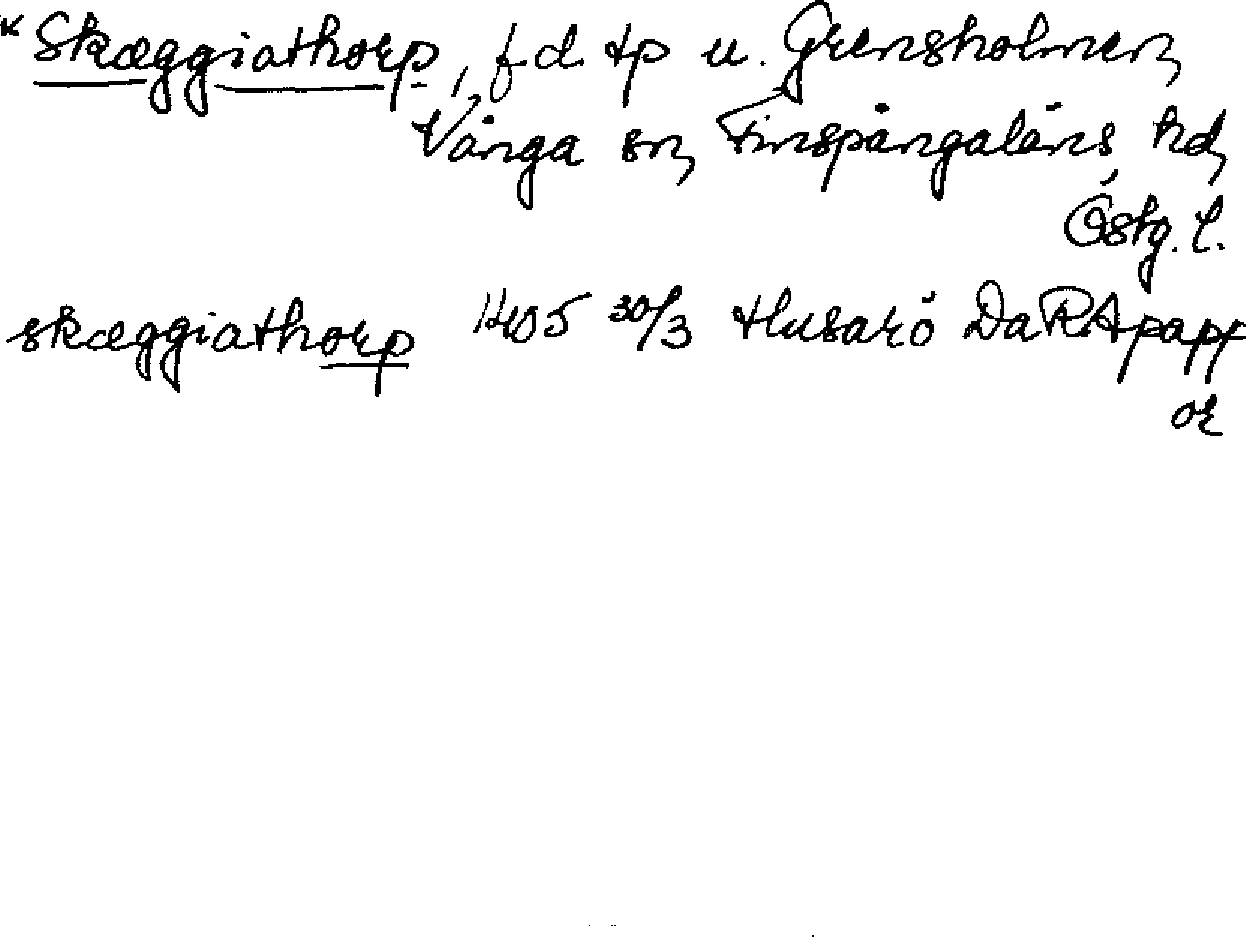 * Skæggiathorp, f.d. tp u. Grensholmen,
Vånga sn, Finspångaläns hd,
Östg. l.
skæggiathorp 1405 30/3 Husarö DaRApapp
or